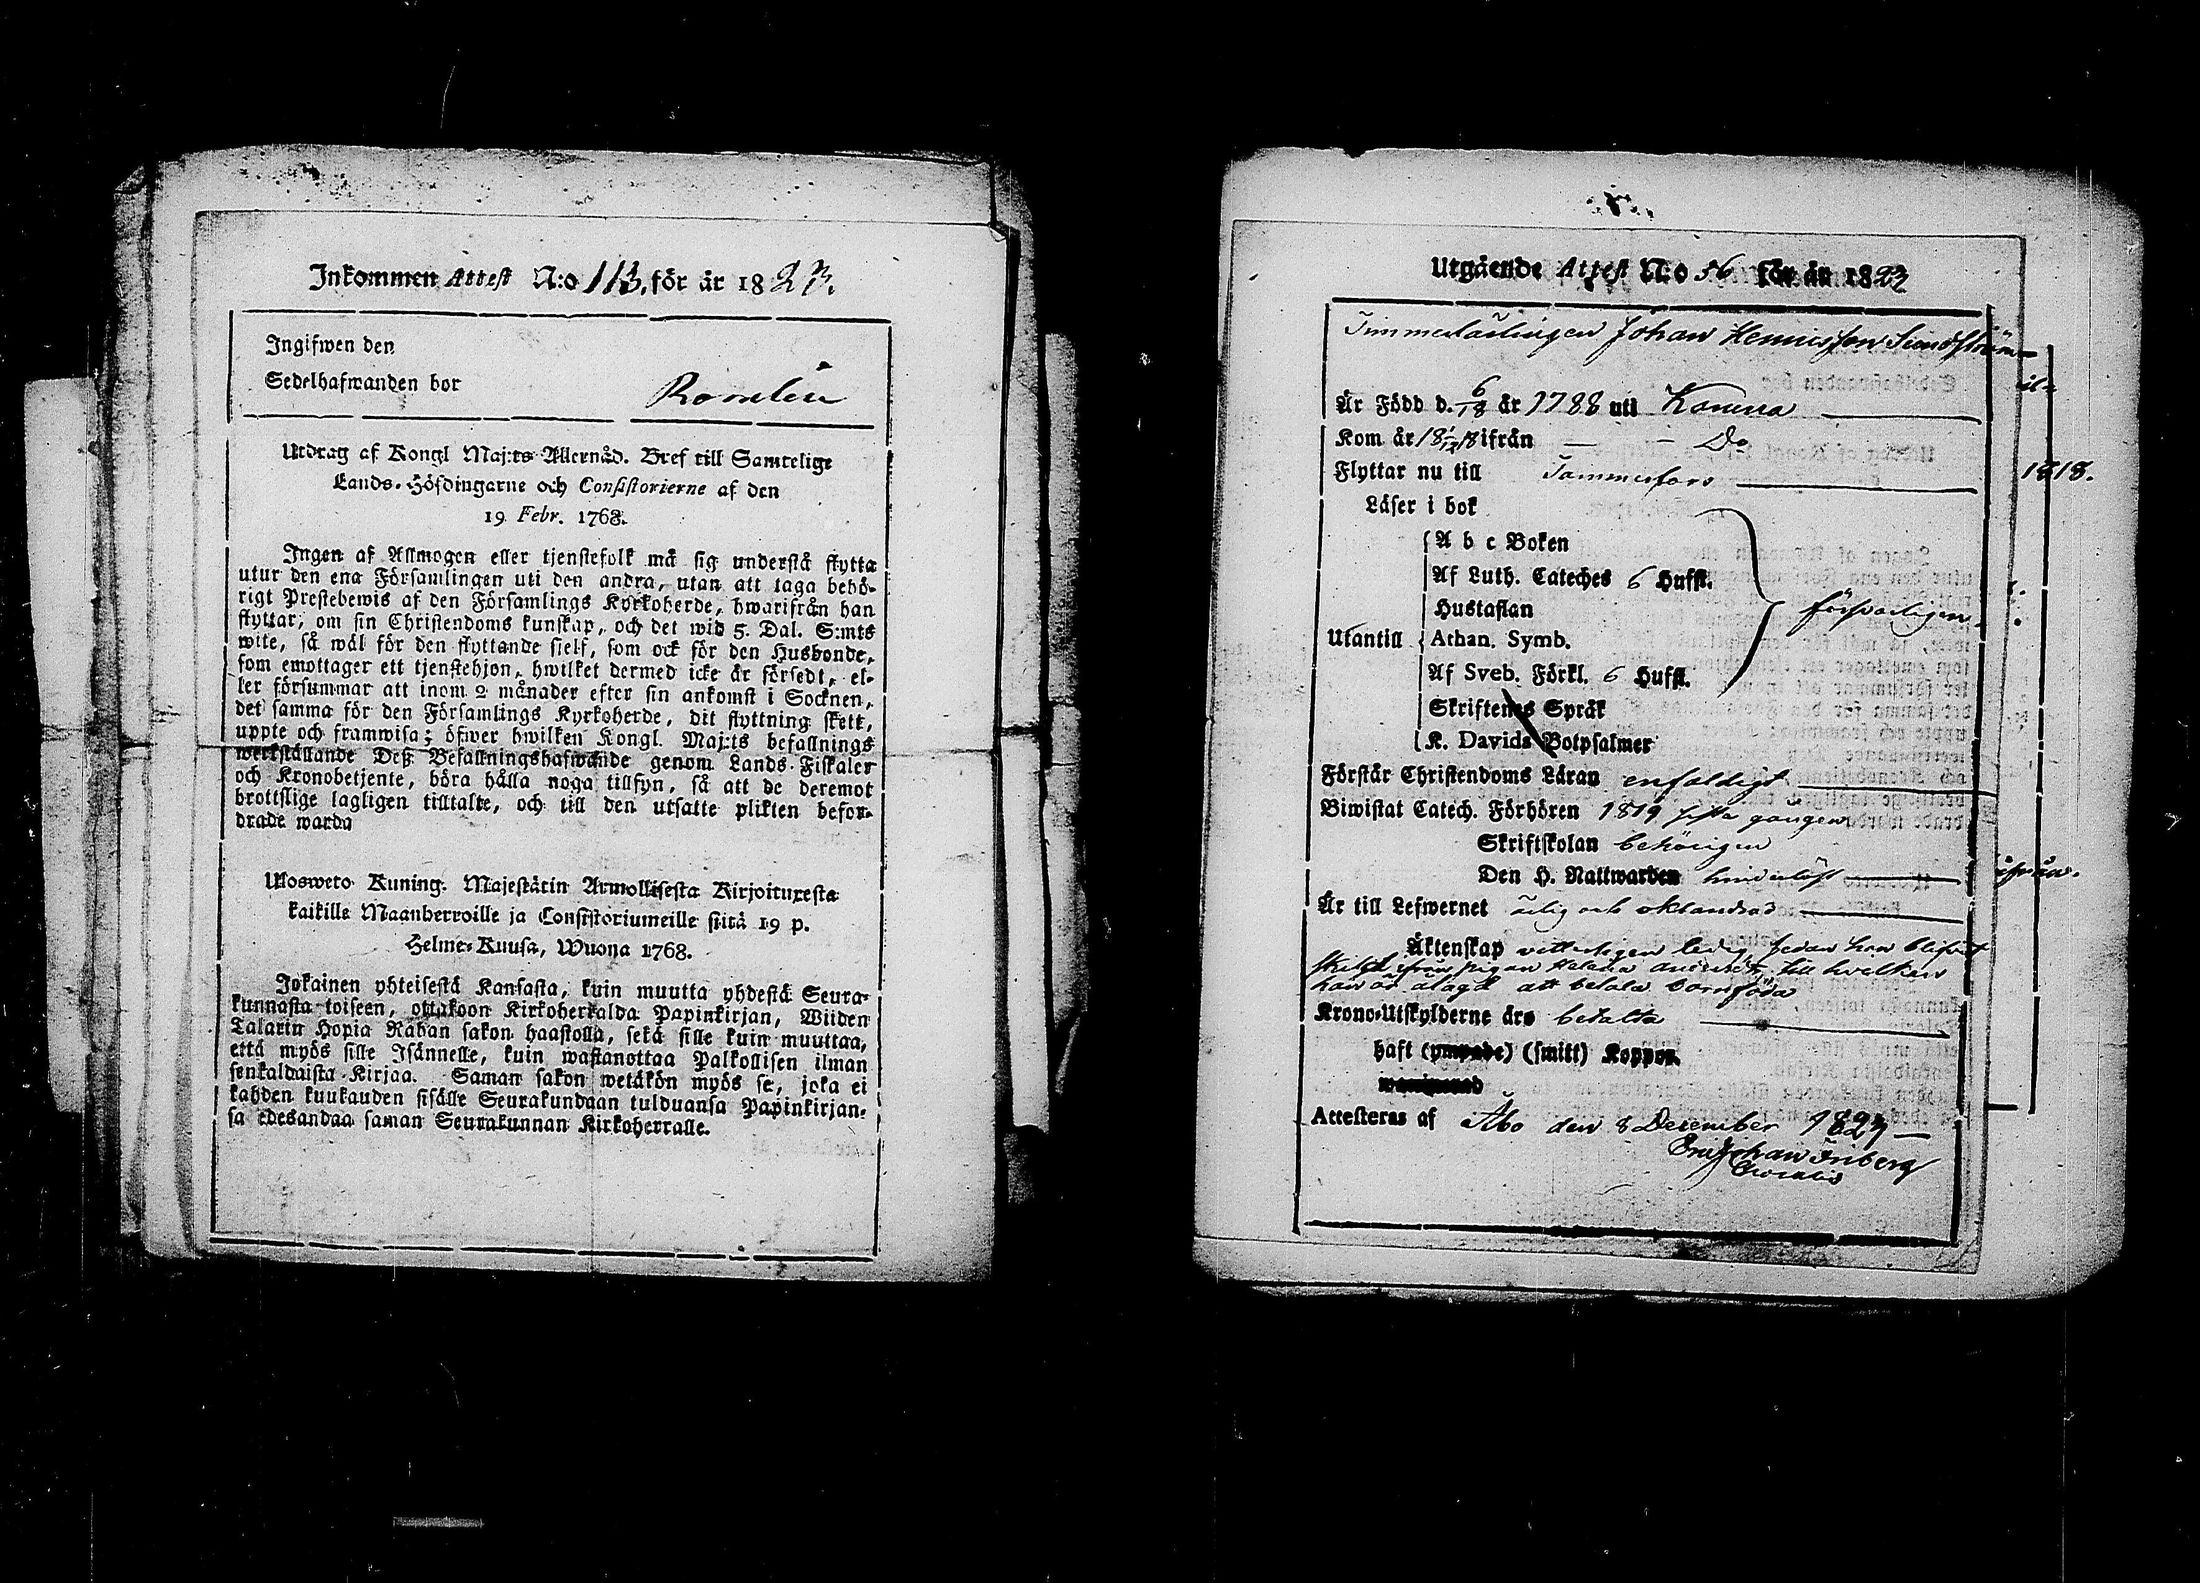 Inkommen Attest N:o 113. för år 1823.
Ingifwen den
Sedelhafwanden bor
Utdrag af Kongl Maj:ts Allernåd. Bref till Samtelige
Lands-Höfdingarne och Consistorierne af den
19 Febr. 1768.
Ingen af Allmogen eller tjenstefolk må sig understå flytta
utur den ena Församlingen uti den andra, utan att taga behö-
rigt Prestebewis af den Församlings Kyrkoherde, hwarifrån han
flyttar, om sin Christendoms kunskap, och det wid 5. Dal. S:mts
wite, så wäl för den flyttande sielf, som ock för den Husbonde,
som emottager ett tjenstehjon, hwilket dermed icke är försedt, el-
ler försummar att inom 2 månader efter sin ankomst i Socknen,
det samma för den Församlings Kyrkoherde, dit flyttning skett,
uppte och framwisa; öfwer hwilken Kongl. Maj:ts befallnings
werkställande Deß Befallningshafwande genom Lands-Fiskaler
och Kronobetjente, böra hålla noga tillsyn, så att de deremot
brottslige lagligen tilltalte, och till den utsatte plikten befor-
drade warda
Ulosweto Kuning. Majestätin Armollisesta Kirjoituxesta
kaikille Maanherroille ja Consistoriumeille siitä 19 p.
Helme-Kuusa, Wuona 1768.
Jokainen yhteisestä Kansasta, kuin muutta yhdestä Seura-
kunnasta toiseen, ottakoon Kirkoherralda Papinkirjan, Wiiden
Talarin Hopia Rahan sakon haastolla, sekä sille kuin muuttaa,
että myös sille Isännelle, kuin wastanottaa Palkollisen ilman
senkaldaista Kirjaa. Saman sakon wetäkön myös se, joka ei
kahden kuukauden sisälle Seurakundaan tulduansa Papinkirjan-
sa edesandaa saman Seurakunnan Kirkoherralle.
Utgående Attest N:o 56 för år 1823
Timmerkarlingen Johan Henricsson Sundström
Är Född d. 6/18 år 1788 uti
Kom år 18 18 ifrån — — Do
Flyttar nu till Tammerfors
1818.
Läser i bok
A b c Boken
Af Luth. Cateches 6 Huffst.
Hustaflan
försvarligen.
Utantill Athan. Symb.
Af Sveb. Förkl. 6 Huffst.
Skriftenes Språk
K. Davids Botpsalmer
Förstår Christendoms Läran enfaldigt
Biwistat Catech. Förhören 1819 sista gången
Skriftskolan behörigen
Den H. Nattwarden hinderlöst
Är till Lefwernet ärlig och oklandrad
Äktenskap vetterligen ledig, sedan han blifvit
skild från pigan Helena till hvilken
han är ålagd att betala barnföda
Krono-Utskylderne äro betalta
haft (ympade) (smitt) Koppor.
Attesteras af Åbo den 8 December 1823
Johan Friberg